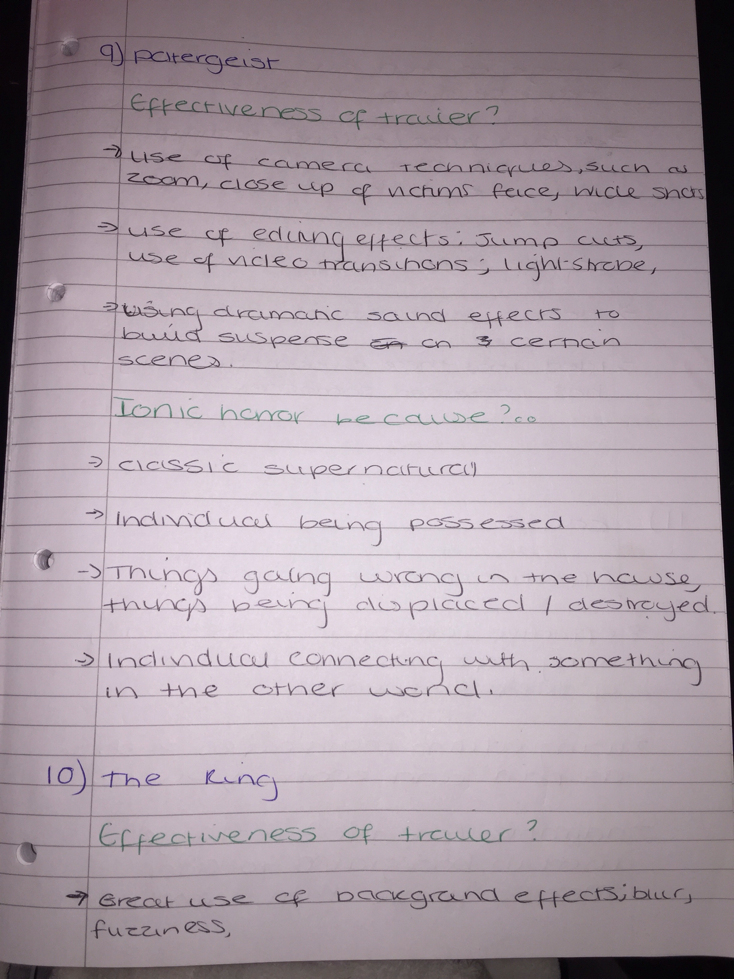 9) poltergeist
Effectiveness of trailer?
→ use of camera techniques, such as
zoom, close up of victims face, wide shots
→ use of editing effects: Jump cuts,
use of video transitions; light-strobe,
→ using dramatic sound effects to
build suspense on certain
scenes.
Ionic horror because?
→ classic supernatural
→ Individual being possessed
→ Things going wrong in the house,
things being displaced / destroyed.
→ Individual connecting with something
in the other world.
10) The Ring
Effectiveness of trailer?
→ Great use of background effects; blur,
fuzziness,